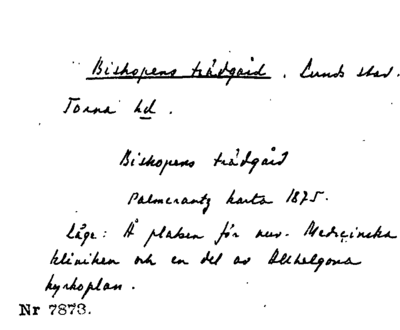 Biskopens trädgård. Lunds stad.
Torna hd.
Biskopens trädgård
Palmcrantz karta 1875.
Läge: Å platsen för nuv. Medicinska
kliniken och en del av Allhelgona
kyrkoplan.
Nr 7873.